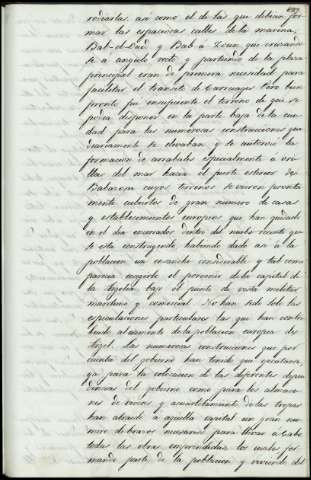 rodearlas, asi como el de las que debian for-
mar las espaciosas calles de la marina,
Bab-el-Oued y Bab á Zoun que cruzando-
se á angulo recto y partiendo de la plaza
principal eran de primera necesidad para
facilitar el transito de Carruages. Pero bien
pronto fue insuficiente el terreno de que se
podia disponer en la parte baja de la ciu-
dad para las numerosas construcciones que
diariamente se elevaban y se autorizó la
formacion de arrabales especialmente á ori-
llas del mar hacia el fuerte esterior de
Babazoun cuyos terrenos se vieron pronta-
mente cubiertos de gran numero de casas
y establecimientos europeos que han quedado
en el dia encerrados dentro del nuevo recinto que
se está construyendo, habiendo dado asi á la
poblacion un ensanche considerable y tal como
parecia exigirlo el porvenir de la capital de
la Argelia bajo el punto de vista militar,
maritimo y comercial. No han sido solo las
especulaciones particulares las que han contri-
buido al aumento de la poblacion europea de
Argel. Las numerosas construcciones que por
cuenta del gobierno han tenido que ejecutarse,
ya para la colocacion de las diferentes depen-
dencias del gobierno como para los almace-
nes de viveres y acuartelamiento de las tropas
han atraido á aquella capital un gran nu-
mero de brazos necesarios para llevar á cabo
todas las obras emprendidas los cuales for-
mando parte de la poblacion y viviendo del